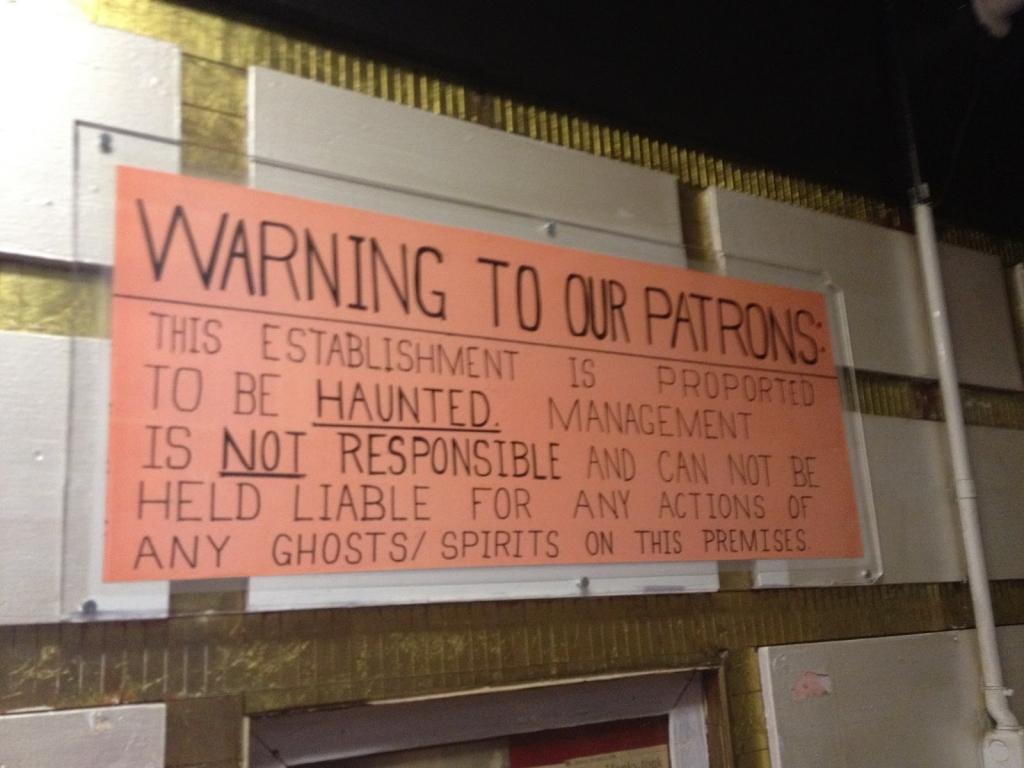 WARNING TO OUR PATRONS:
THIS ESTABLISHMENT IS PROPORTED
TO BE HAUNTED. MANAGEMENT
IS NOT RESPONSIBLE AND CAN NOT BE
HELD LIABLE FOR ANY ACTIONS OF
ANY GHOSTS/SPIRITS ON THIS PREMISES.